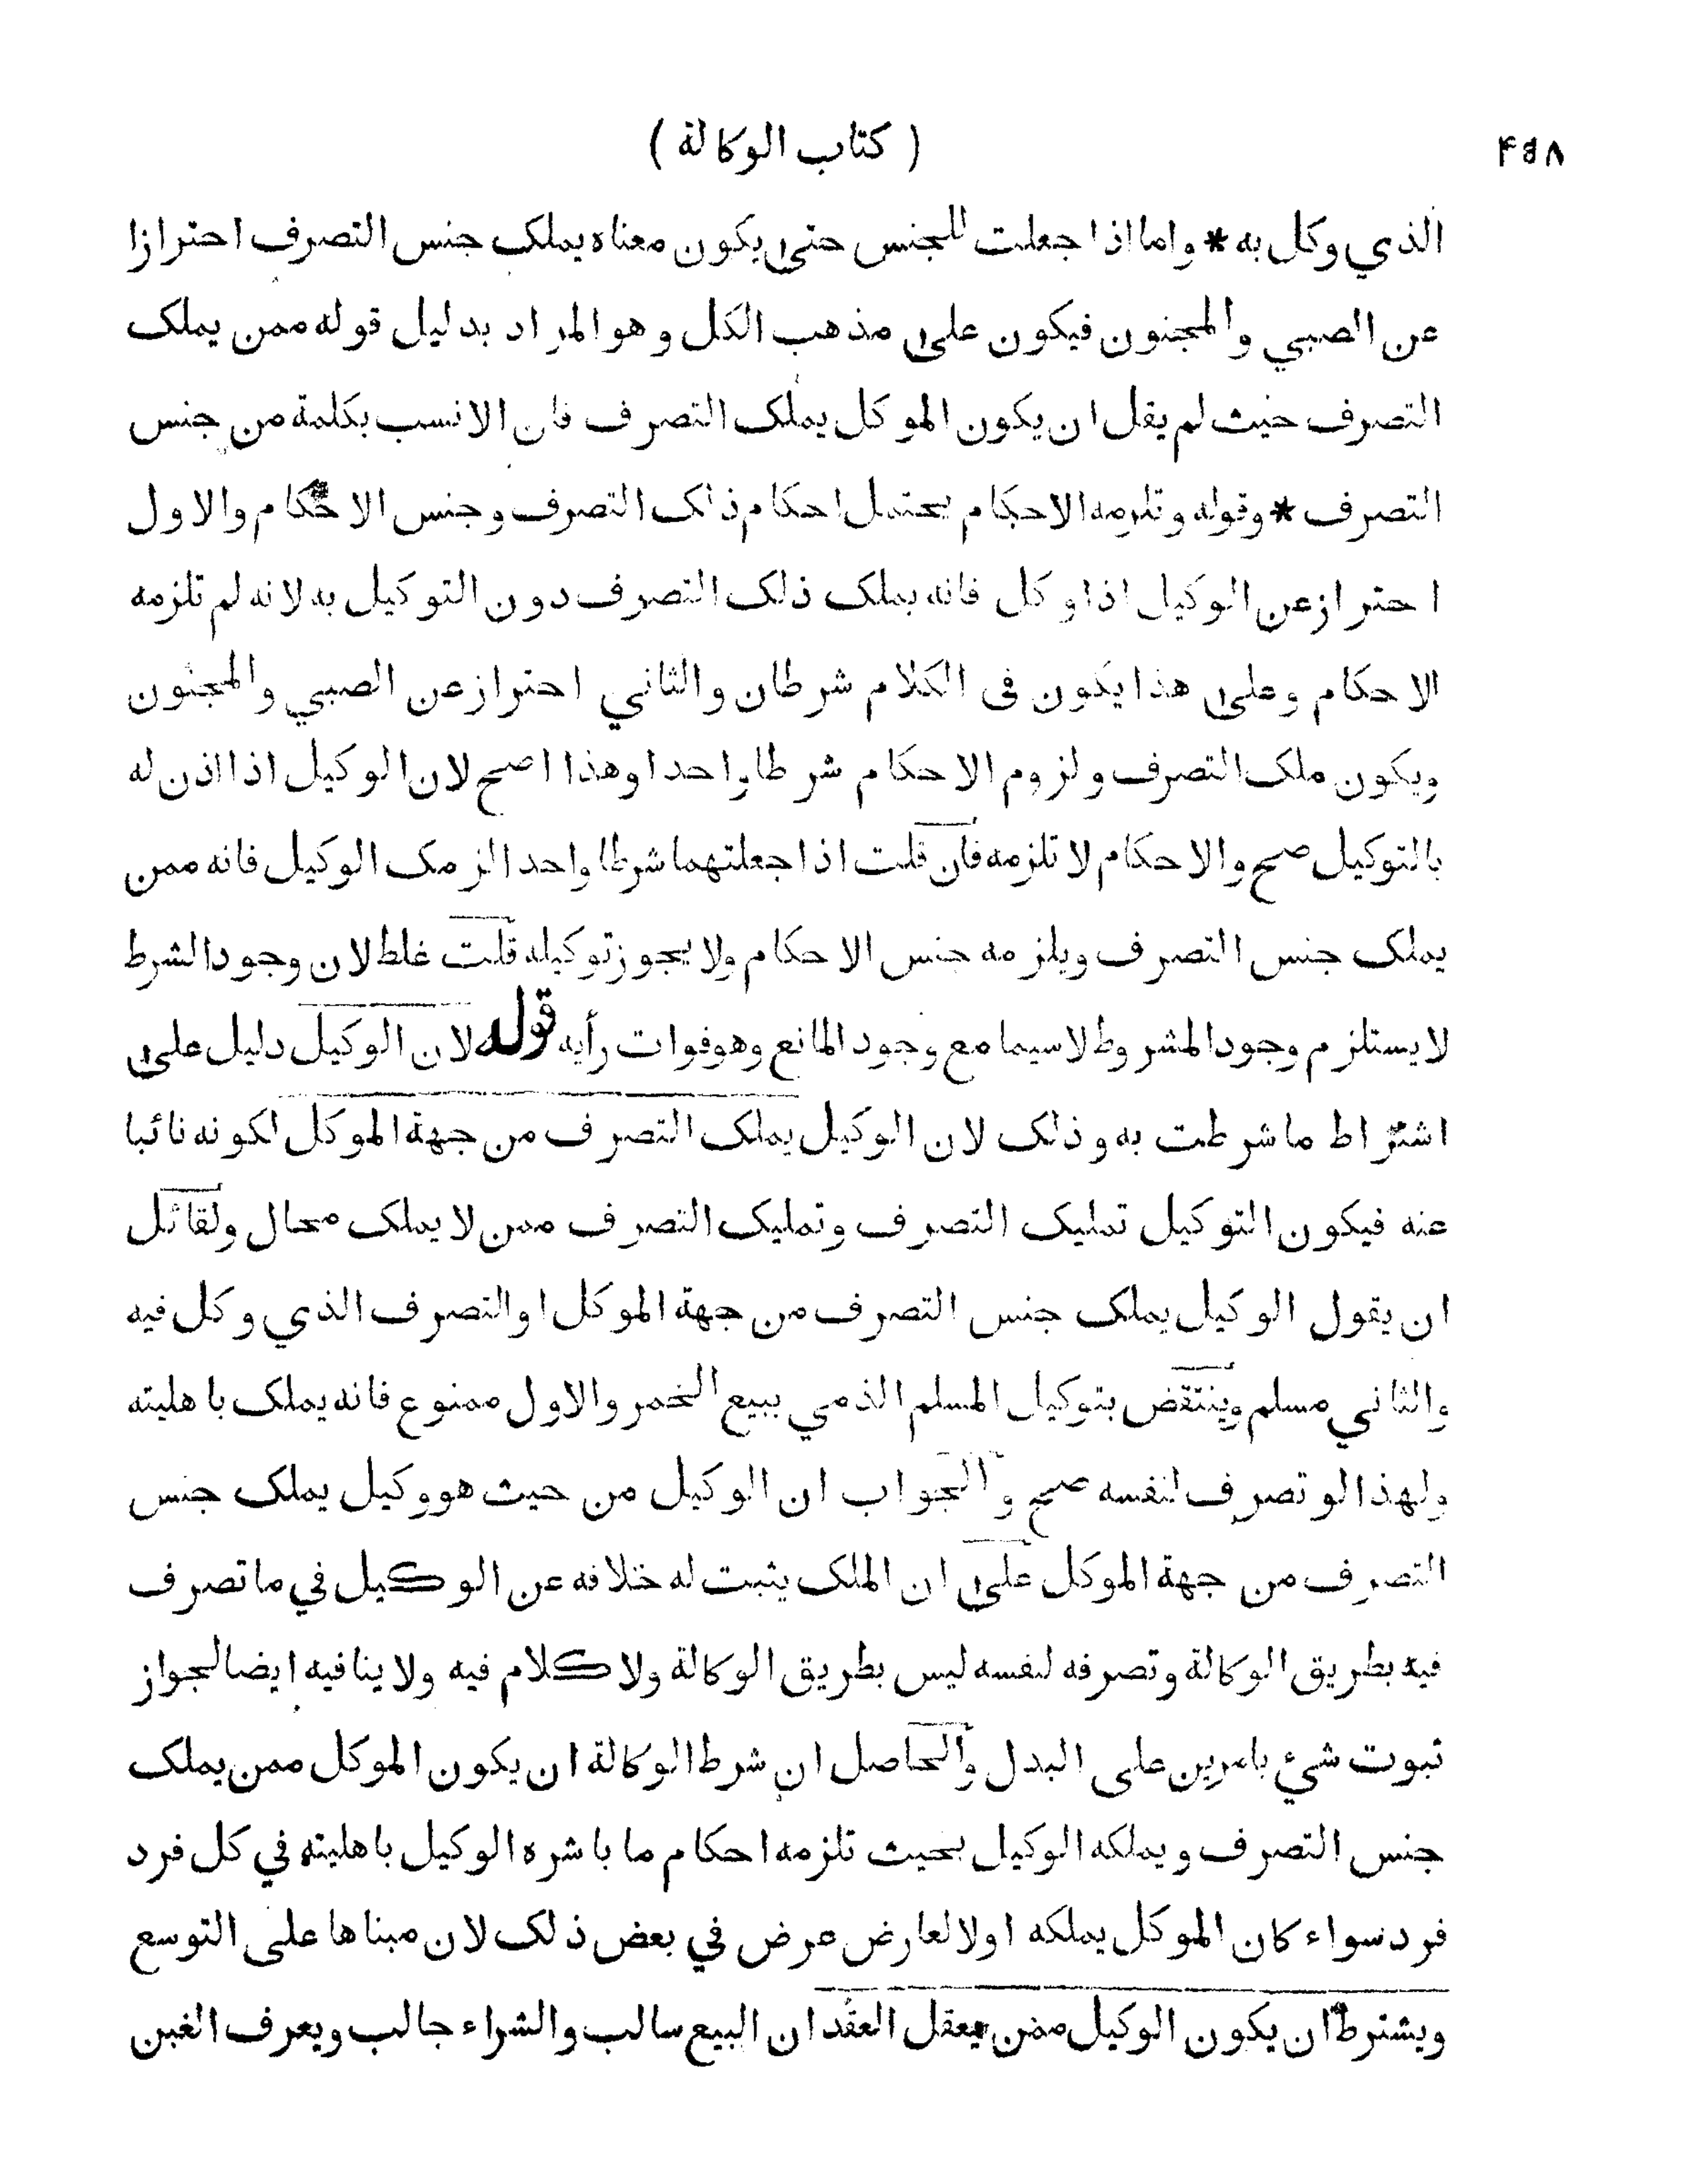 ۴۵۸
( كتاب الوكالة )
الذي وكل به * واما اذا جعلت للجنس حتى يكون معناه يملك جنس التصرف احترازا
عن الصبي والمجنون فيكون على مذهب الكل وهو المراد بدليل قوله ممن يملك
التصرف حيث لم يقل ان يكون الموكل يملك التصرف فان الانسب بكلمة من جنس
التصرف * وقوله وتلزمه الاحكام يحتمل احكام ذلك التصرف وجنس الاحكام والاول
احتراز عن الوكيل اذا وكل فانه يملك ذلك التصرف دون التوكيل به لانه لم تلزمه
الاحكام وعلى هذا يكون فى الكلام شرطان والثاني احتراز عن الصبي والمجنون
ويكون ملك التصرف ولزوم الاحكام شرطا واحدا وهذا اصح لان الوكيل اذا اذن له
بالتوكيل صح والاحكام لا تلزمه فان قلت اذا جعلتهما شرطا واحد الزمك الوكيل فانه ممن
يملك جنس التصرف ويلزمه جنس الاحكام ولا يجوز توكيله قلت غلط لان وجود الشرط
لا يستلزم وجود المشروط لاسيما مع وجود المانع وهو فوات رأيه قوله لان الوكيل دليل على
اشتراط ما شرطت به وذلك لان الوكيل يملك التصرف من جهة الموكل لكونه نائبا
عنه فيكون التوكيل تمليك التصرف وتمليك التصرف ممن لا يملك محال ولقائل
ان يقول الوكيل يملك جنس التصرف من جهة الموكل او التصرف الذي وكل فيه
والثاني مسلم وينتقض بتوكيل المسلم الذمي ببيع الخمر والاول ممنوع فانه يملك باهليته
ولهذا لو تصرف لنفسه صح والجواب ان الوكيل من حيث هو وكيل يملك جنس
التصرف من جهة الموكل على ان الملك يثبت له خلافه عن الوكيل في ما تصرف
فيه بطريق الوكالة وتصرفه لنفسه ليس بطريق الوكالة ولا كلام فيه ولا ينافيه ايضا لجواز
ثبوت شئ بامرين على البدل والحاصل ان شرط الوكالة ان يكون الموكل ممن يملك
جنس التصرف ويملكه الوكيل بحيث تلزمه احكام ما باشره الوكيل باهليته في كل فرد
فرد سواء كان الموكل يملكه اولا لعارض عرض في بعض ذلك لان مبناها على التوسع
ويشترط ان يكون الوكيل ممن يعقل العقد ان البيع سالب والشراء جالب ويعرف الغبن